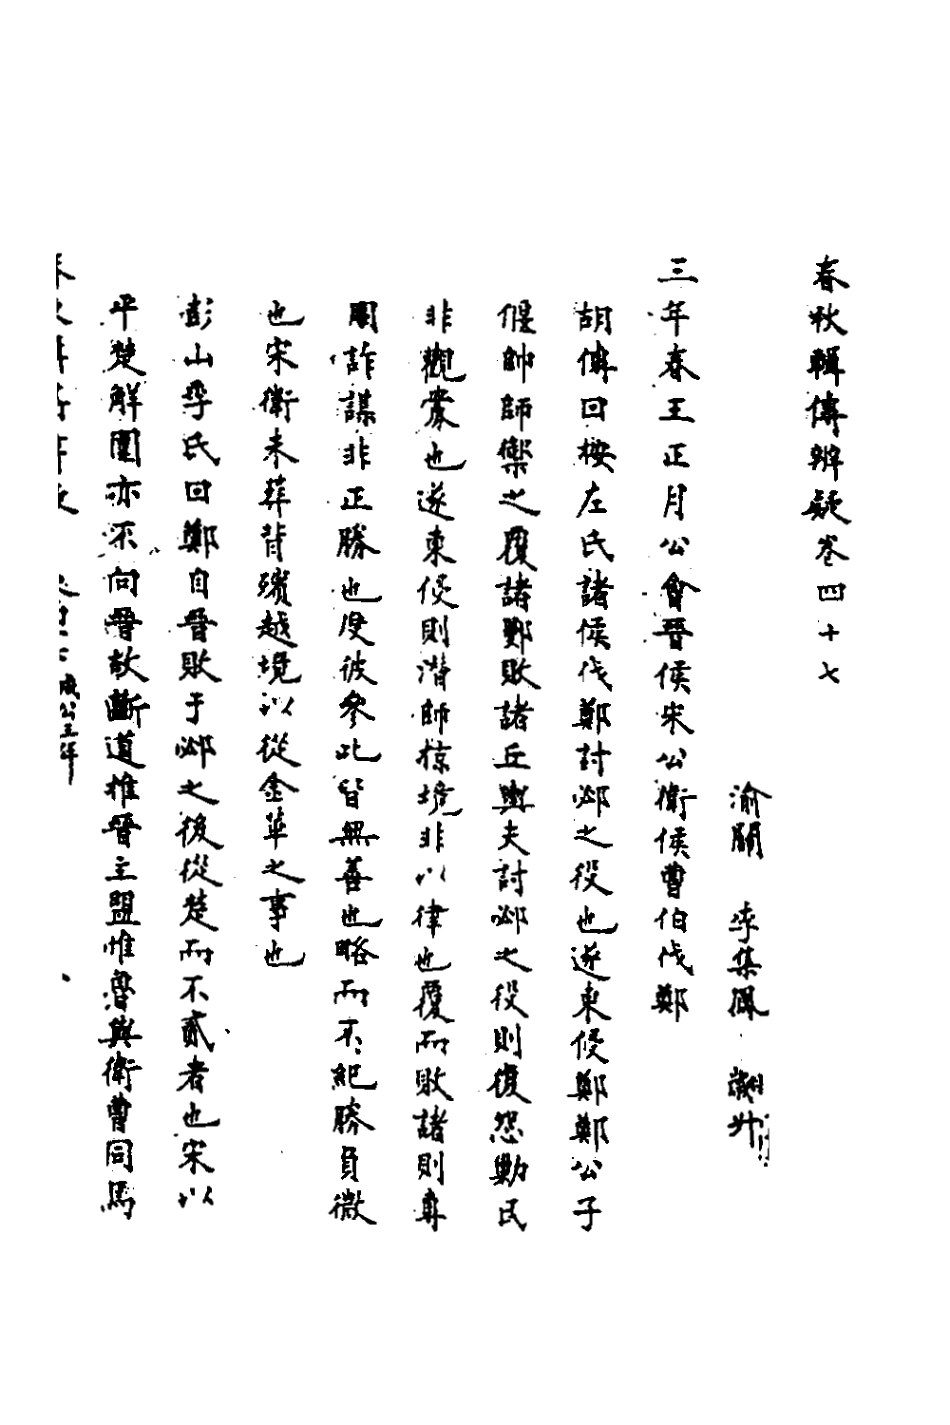 春秋輯傳辨疑卷四十七
渝關　李集鳳　翽升
三年春王正月公會晉侯宋公衛侯曹伯伐鄭
胡傳曰按左氏諸侯伐鄭討邲之役也遂東侵鄭鄭公子
偃帥師禦之覆諸鄤敗諸丘輿夫討邲之役則復怨勤民
非觀釁也遂東侵則潛師掠境非以律也覆而敗諸則專
用詐謀非正勝也度彼參此皆無善也略而不紀勝負微
也宋衛未葬背殯越境以從金革之事也
彭山季氏曰鄭自晉敗于邲之後從楚而不貳者也宋以
平楚解圍亦不向晉故斷道推晉主盟惟魯與衛曹同焉
春秋輯傳辨疑　卷四十七　成公三年